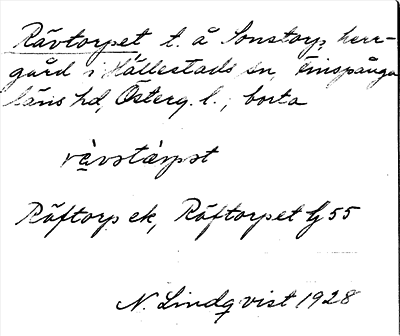 Rävtorpet t. å Sonstorp, herr-
gård i Hällestads sn, Finspånga
läns hd, Österg. l.; borta
rävstärpst
Räftorp ek, Räftorpet Lj 55
N. Lindqvist 1928